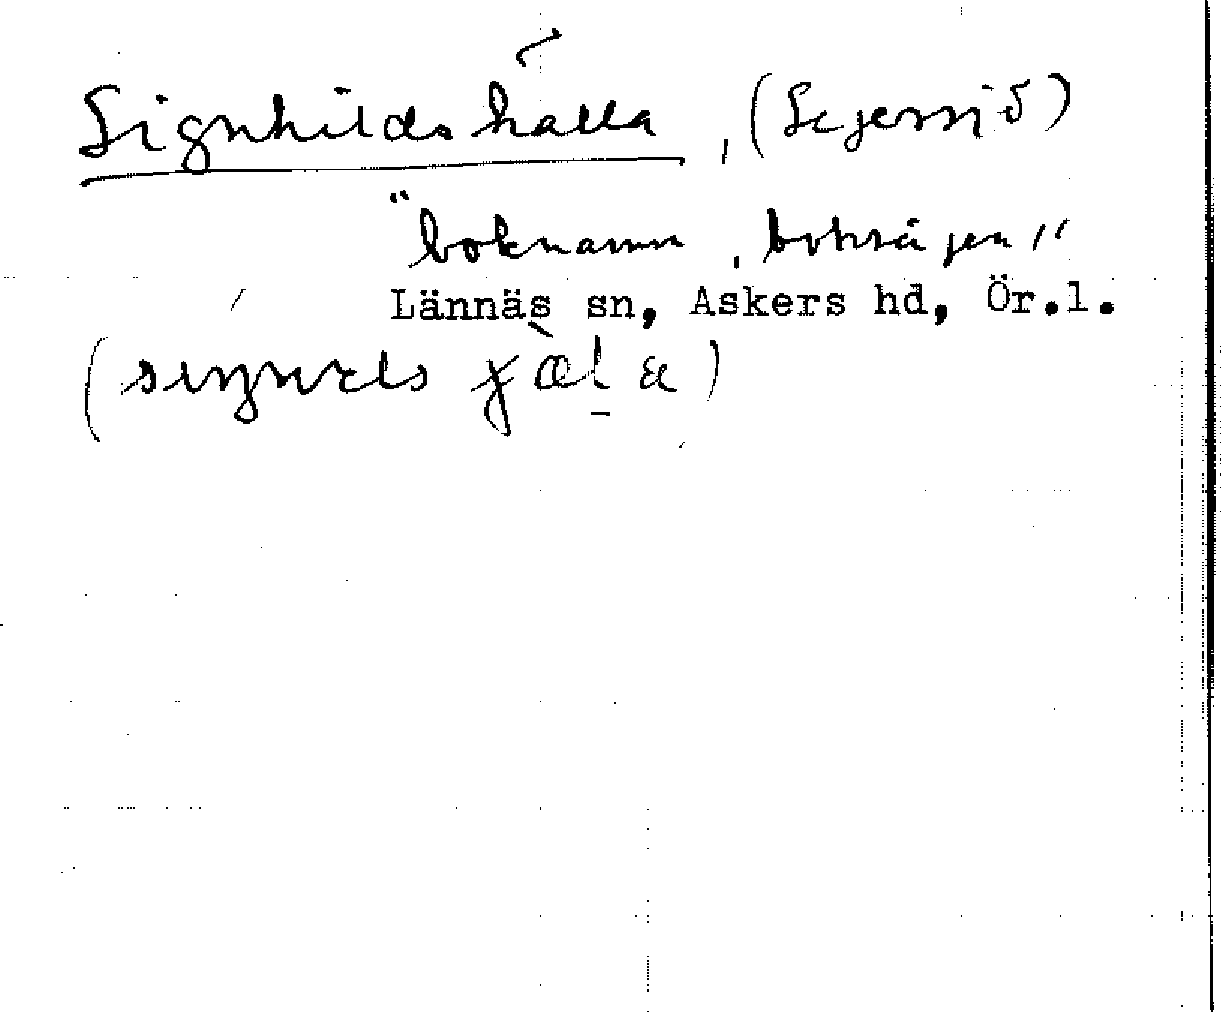 Signhildshälla, (Segersjö)
"boknamn, bohsägen"
Lännäs sn, Askers hd, Ör.l.